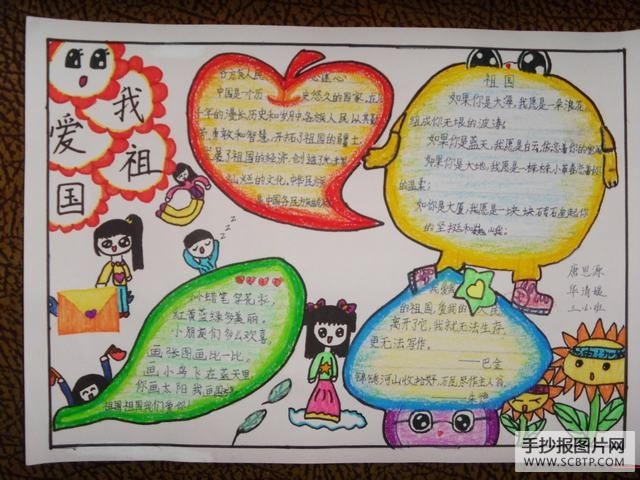 我
爱
祖
国
中国是一个历史悠久的国家,在
千年的漫长历史和岁月中各族人民以其勤
劳,勇敢和智慧,开拓了祖国的疆土,
发展了祖国的经济,创造了
灿烂的文化,中华民
祖国
如果你是大海,我愿是一朵浪花
组成你无垠的波涛;
如果你是蓝天,我愿是白云
如果你是大地,我愿是一棵棵小草
的温柔;
如你是大厦,我愿是一块块砖石
的坚挺和巍峨;
小蜡笔穿花衣,
红黄蓝绿多美丽,
小朋友们多么欢喜,
画张图画比一比。
画小鸟飞在蓝天里,
你画太阳我画国
祖国祖国我们爱你!
的祖国,爱我的人民
离开了它,我就无法生存,
更无法写作。
——巴金
锦绣河山收拾好,万民尽作主人翁。
——朱德
唐思源
华清媛
三小班
手抄报图片网
WWW.SCBTP.COM